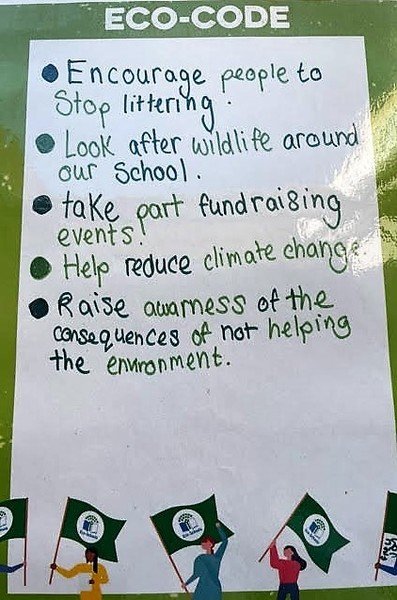 ECO-CODE
• Encourage people to
Stop littering.
• Look after wildlife around
our School.
• take part fundraising
events.
• Help reduce climate change
• Raise awarness of the
consequences of not helping
the environment.